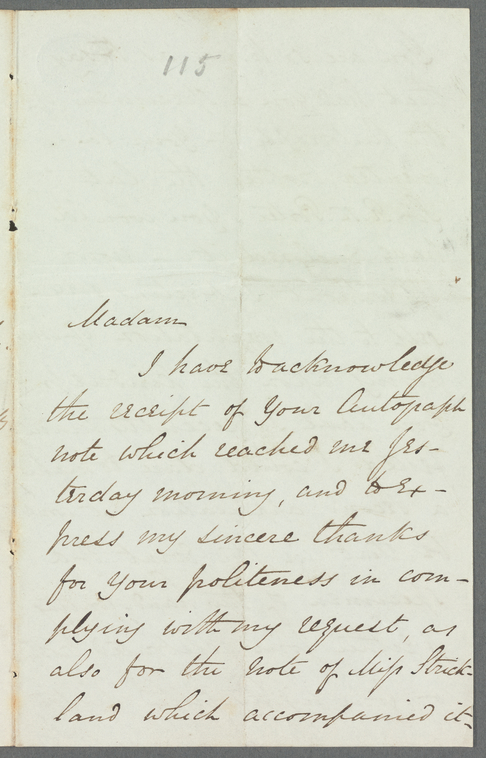 115
Madam
I have to acknowledge
the receipt of Your Autograph
note which reached me Yes-
terday morning, and to Ex-
press my sincere thanks
for your politeness in com-
plying with my request, as
also for the note of Miss Strick-
land which accompanied it-